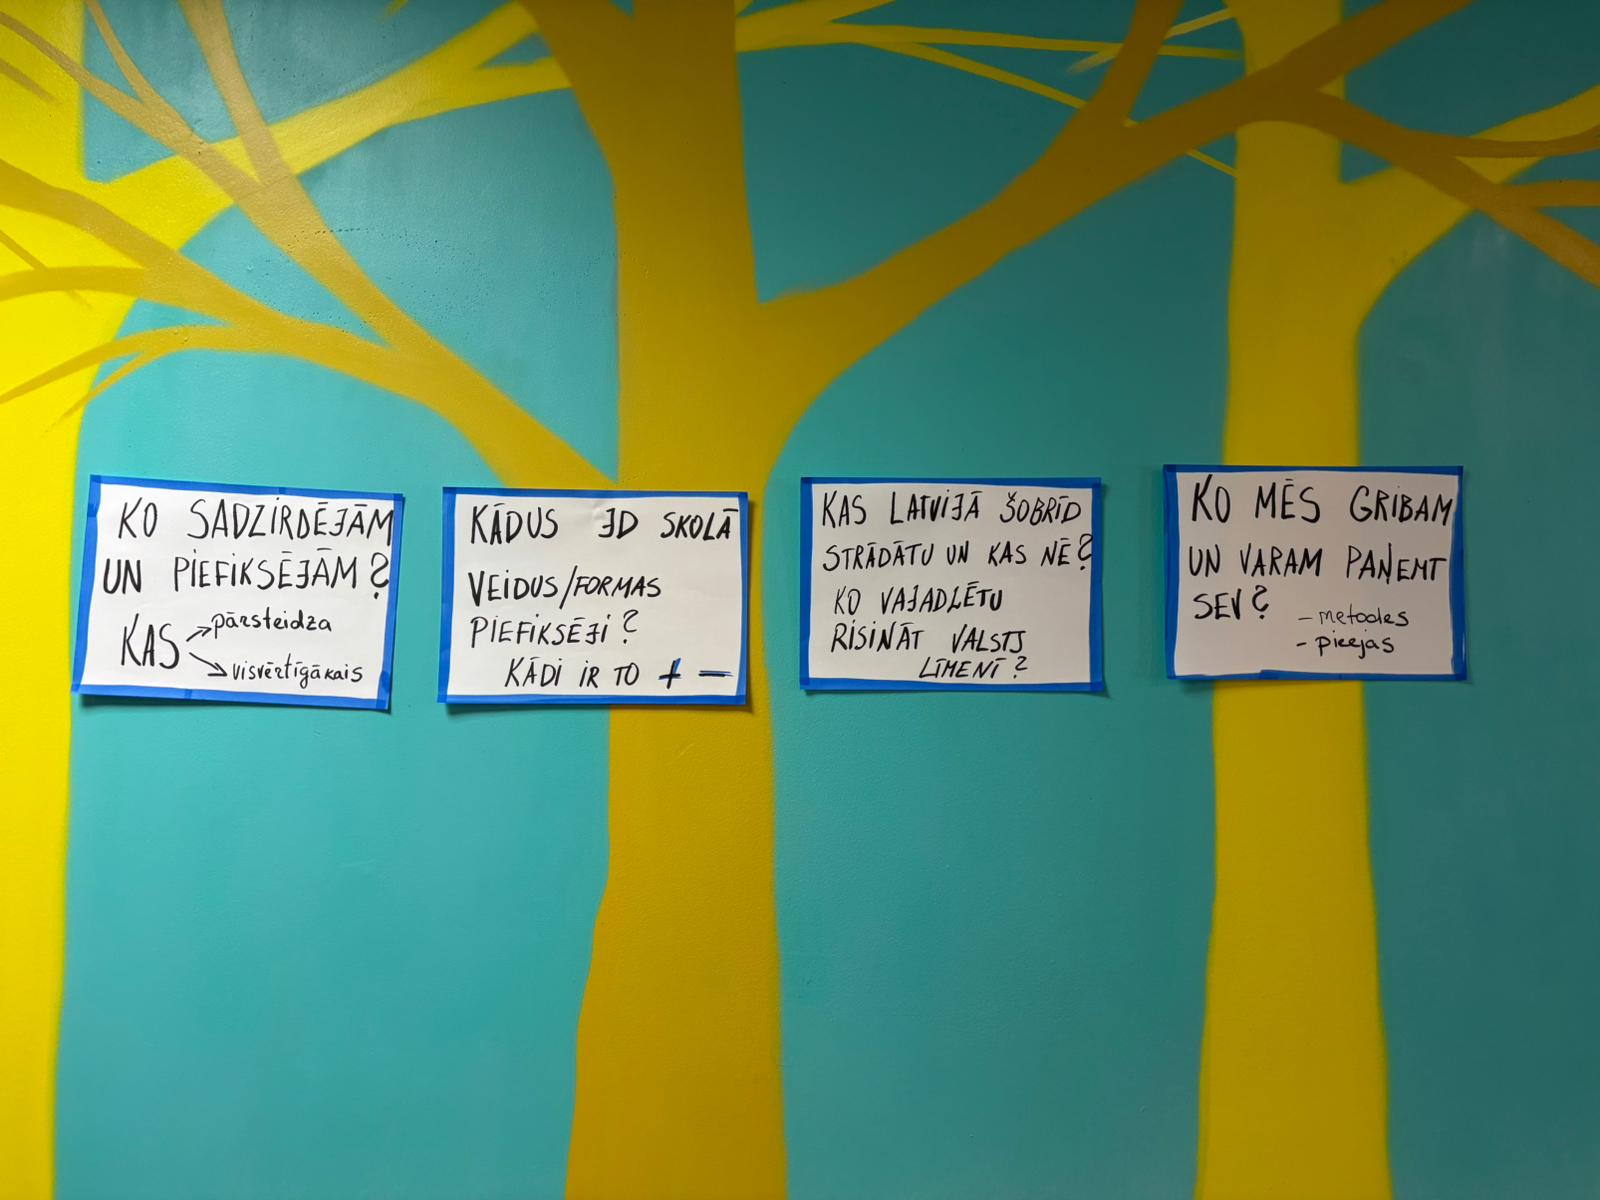 KO SADZIRDĒJĀM
UN PIEFIKSĒJĀM?
KAS
pārsteidza
visvērtīgākais
KĀDUS JD SKOLĀ
VEIDUS/FORMAS
PIEFIKSĒJI?
KĀDI IR TO + –
KAS LATVIJĀ ŠOBRĪD
STRĀDĀTU UN KAS NĒ?
KO VAJADZĒTU
RISINĀT VALSTS
LĪMENĪ?
KO MĒS GRIBAM
UN VARAM PAŅEMT
SEV?
- metodes
- pieejas